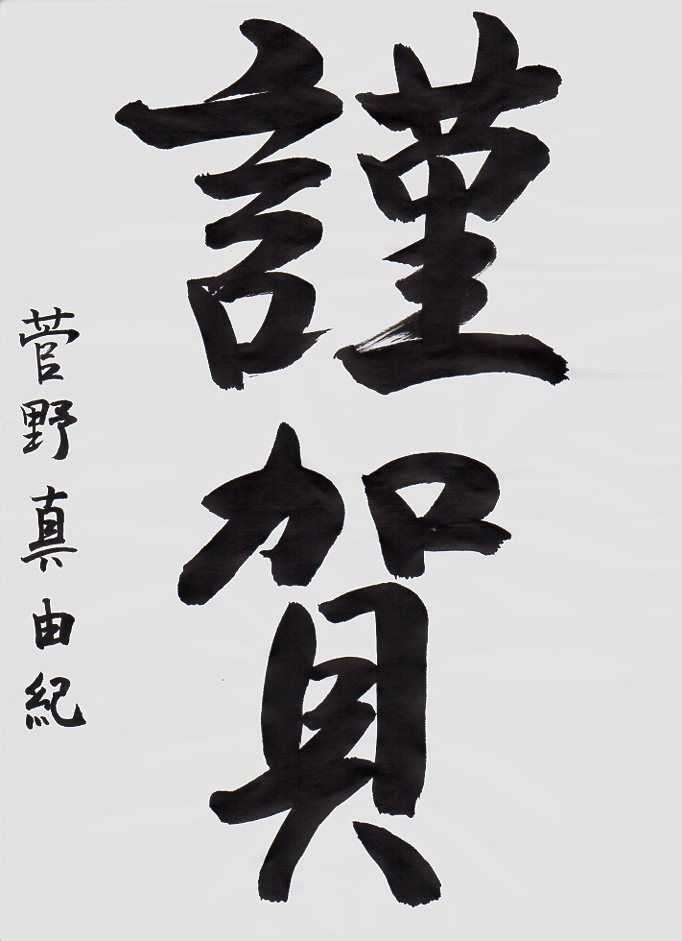 謹賀
菅野真由紀